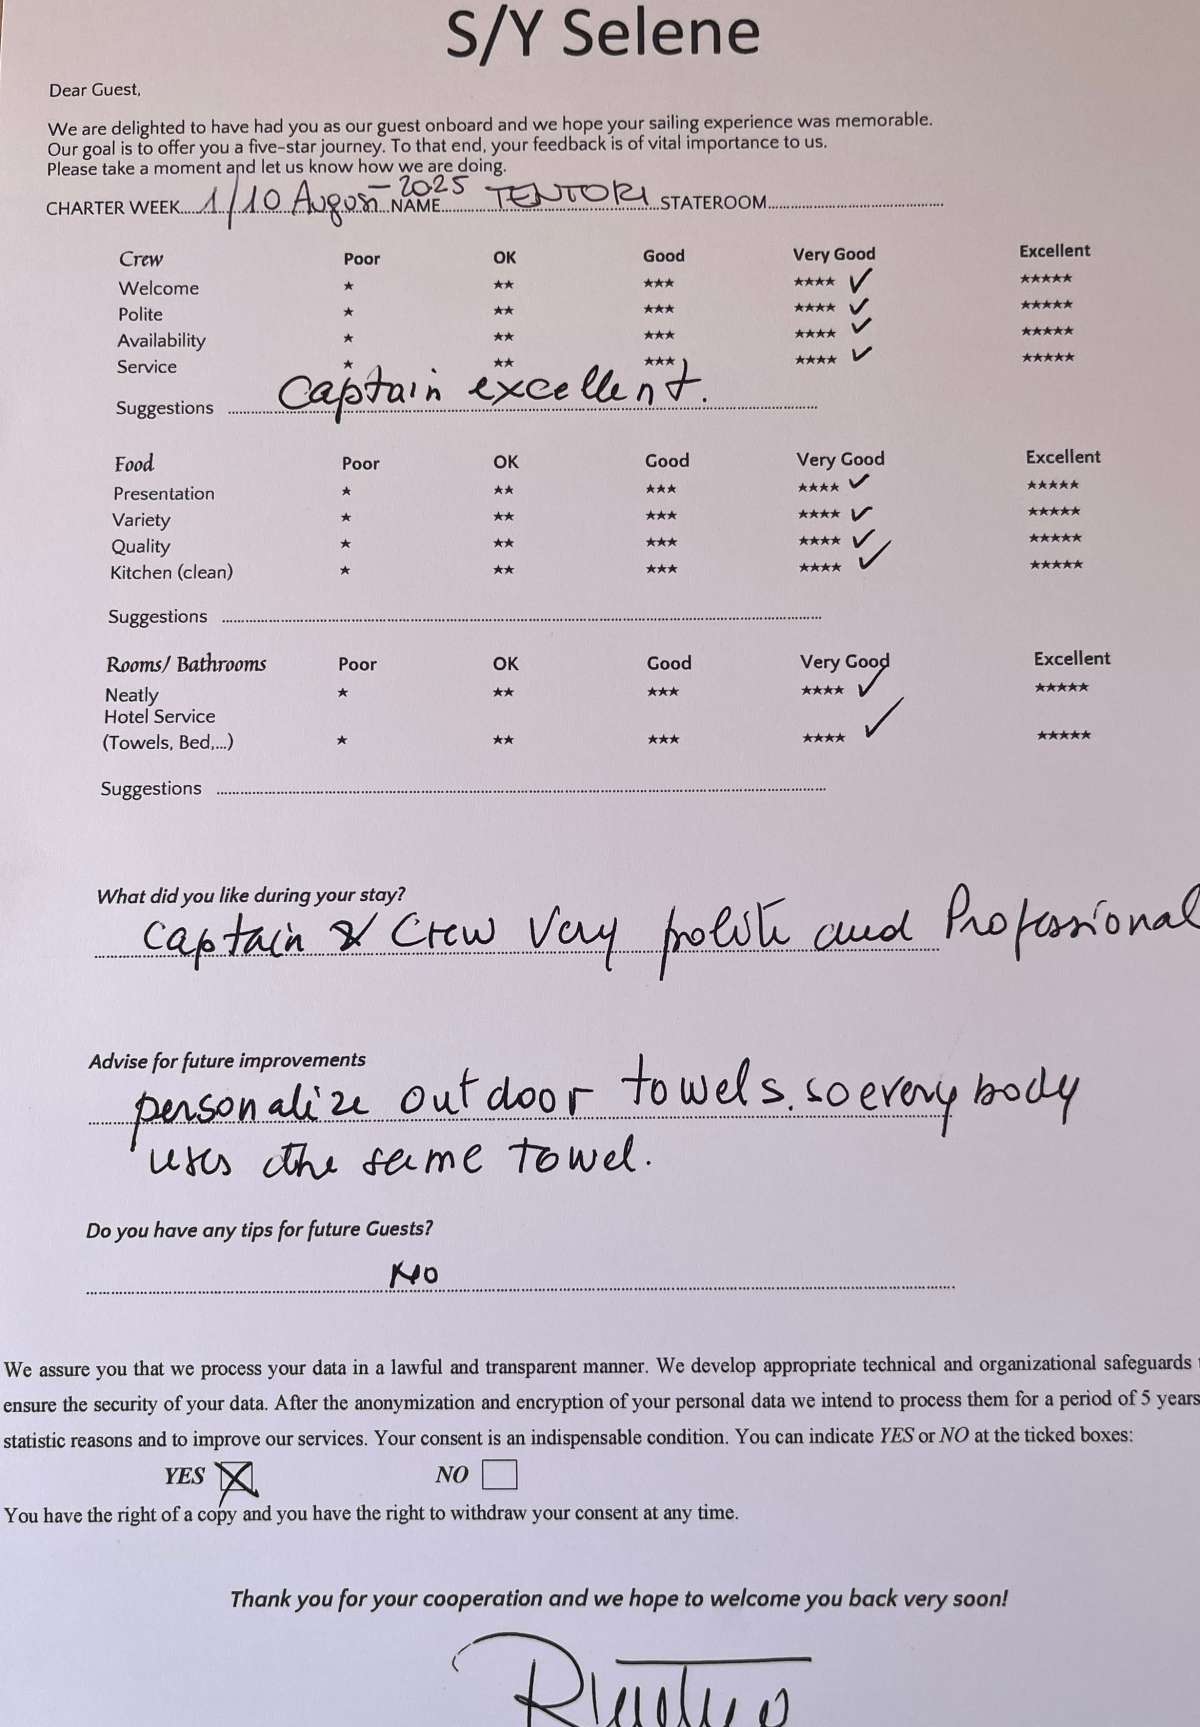 S/Y Selene
Dear Guest,
We are delighted to have had you as our guest onboard and we hope your sailing experience was memorable.
Our goal is to offer you a five-star journey. To that end, your feedback is of vital importance to us.
Please take a moment and let us know how we are doing.
CHARTER WEEK....1/10 August 2025 NAME....TENTORI....STATEROOM....
Crew Poor OK Good Very Good Excellent
Welcome ★ ★★ ★★★ ★★★★ ✓ ★★★★★
Polite ★ ★★ ★★★ ★★★★ ✓ ★★★★★
Availability ★ ★★ ★★★ ★★★★ ✓ ★★★★★
Service ★ ★★ ★★★ ★★★★ ✓ ★★★★★
Suggestions captain excellent.
Food Poor OK Good Very Good Excellent
Presentation ★ ★★ ★★★ ★★★★ ✓ ★★★★★
Variety ★ ★★ ★★★ ★★★★ ✓ ★★★★★
Quality ★ ★★ ★★★ ★★★★ ✓ ★★★★★
Kitchen (clean) ★ ★★ ★★★ ★★★★ ✓ ★★★★★
Suggestions
Rooms/ Bathrooms Poor OK Good Very Good Excellent
Neatly ★ ★★ ★★★ ★★★★ ✓ ★★★★★
Hotel Service
(Towels, Bed,...) ★ ★★ ★★★ ★★★★ ✓ ★★★★★
Suggestions
What did you like during your stay?
captain & Crew Very polite and Professional
Advise for future improvements
personalize outdoor towels. so every body
uses the same towel.
Do you have any tips for future Guests?
No
We assure you that we process your data in a lawful and transparent manner. We develop appropriate technical and organizational safeguards
ensure the security of your data. After the anonymization and encryption of your personal data we intend to process them for a period of 5 years
statistic reasons and to improve our services. Your consent is an indispensable condition. You can indicate YES or NO at the ticked boxes:
YES ☒ NO ☐
You have the right of a copy and you have the right to withdraw your consent at any time.
Thank you for your cooperation and we hope to welcome you back very soon!